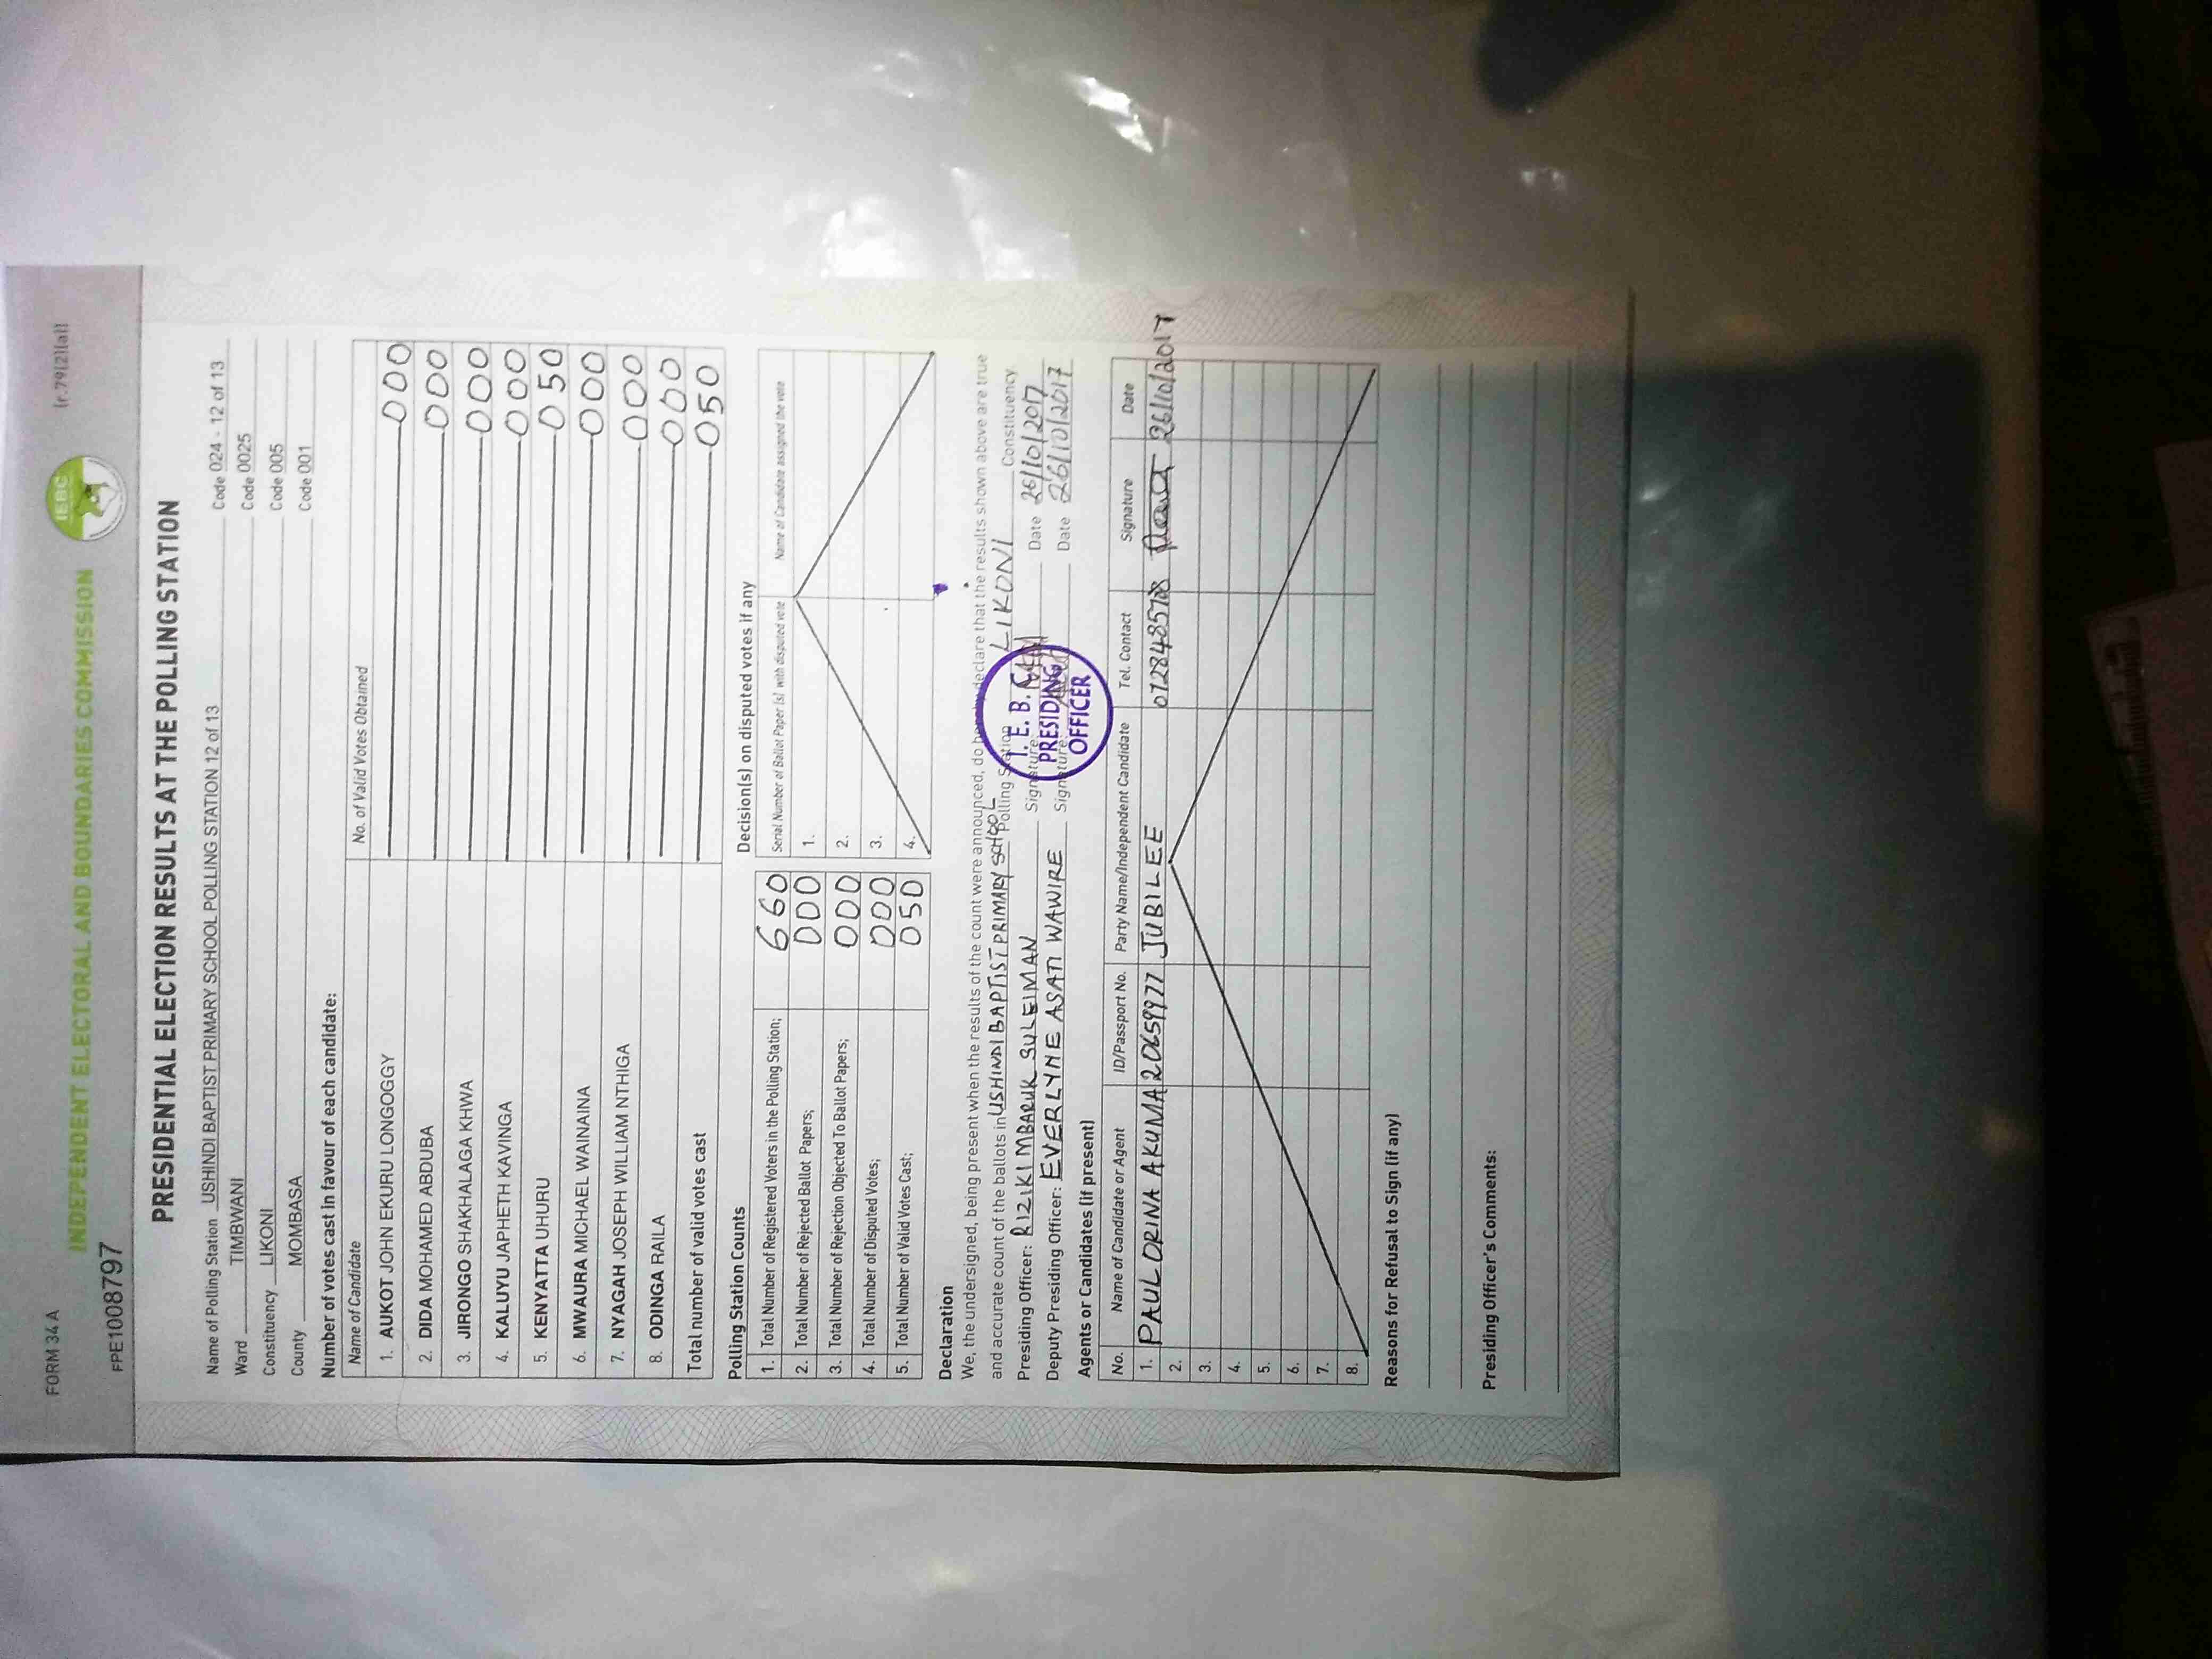 FORM 34 A
(r.79(2)(a))
INDEPENDENT ELECTORAL AND BOUNDARIES COMMISSION
IEBC
FPE1008797
PRESIDENTIAL ELECTION RESULTS AT THE POLLING STATION
Name of Polling Station USHINDI BAPTIST PRIMARY SCHOOL POLLING STATION 12 of 13 Code 024 - 12 of 13
Ward TIMBWANI Code 0025
Constituency LIKONI Code 005
County MOMBASA Code 001
Number of votes cast in favour of each candidate:
Name of Candidate No. of Valid Votes Obtained
1. AUKOT JOHN EKURU LONGOGGY 000
2. DIDA MOHAMED ABDUBA 000
3. JIRONGO SHAKHALAGA KHWA 000
4. KALUYU JAPHETH KAVINGA 000
5. KENYATTA UHURU 050
6. MWAURA MICHAEL WAINAINA 000
7. NYAGAH JOSEPH WILLIAM NTHIGA 000
8. ODINGA RAILA 000
Total number of valid votes cast 050
Polling Station Counts
1. Total Number of Registered Voters in the Polling Station; 660
2. Total Number of Rejected Ballot Papers; 000
3. Total Number of Rejection Objected To Ballot Papers; 000
4. Total Number of Disputed Votes; 000
5. Total Number of Valid Votes Cast; 050
Decision(s) on disputed votes if any
Serial Number of Ballot Paper (s) with disputed vote Name of Candidate assigned the vote
1.
2.
3.
4.
Declaration
We, the undersigned, being present when the results of the count were announced, do hereby declare that the results shown above are true
and accurate count of the ballots in USHINDI BAPTIST PRIMARY SCHOOL Polling Station LIKONI Constituency.
Presiding Officer: RIZIKI MBARUK SULEIMAN Signature: Date 26/10/2017
Deputy Presiding Officer: EVERLYNE ASATI WAWIRE Signature: Date 26/10/2017
I.E.B.C
PRESIDING
OFFICER
Agents or Candidates (if present)
No. Name of Candidate or Agent ID/Passport No. Party Name/Independent Candidate Tel. Contact Signature Date
1. PAUL ORINA AKUMA 20659977 JUBILEE 26/10/2017
2.
3.
4.
5.
6.
7.
8.
Reasons for Refusal to Sign (if any)
Presiding Officer's Comments: